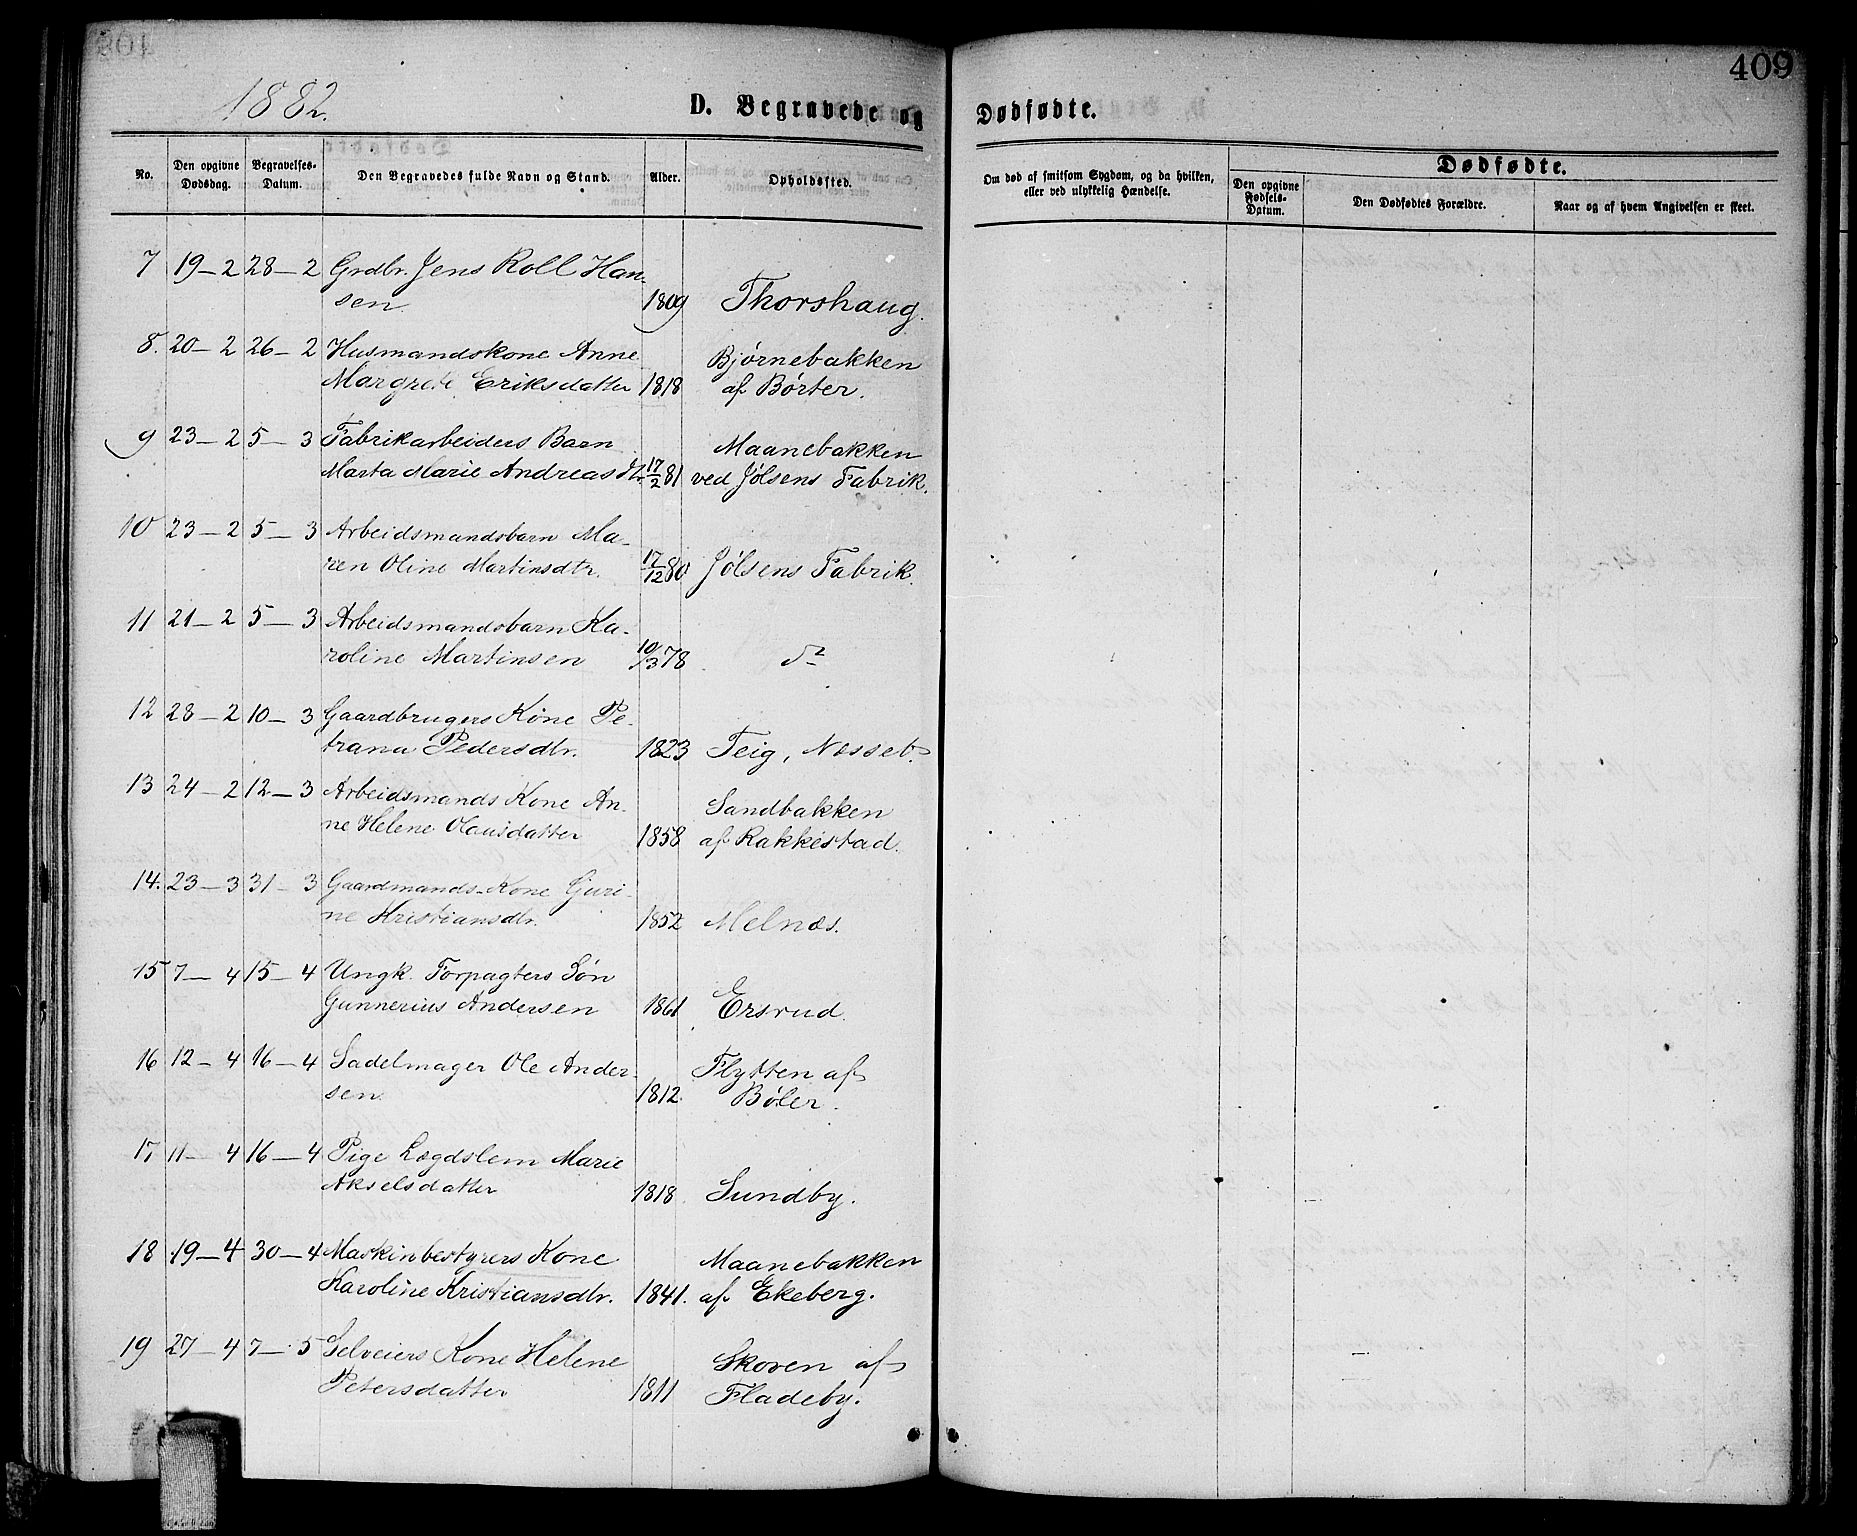 409
1882.
D. Begravede og Dødfødte.
No.
Den opgivne Dødsdag.
Begravelses-Datum.
Den Begravedes fulde Navn og Stand.
Alder.
Opholdssted.
Om død af smitsom Sygdom, og da hvilken, eller ved ulykkelig Hændelse.
Dødfødte.
Den opgivne Fødsels-Datum.
Den Dødfødtes Forældre.
Naar og af hvem Angivelsen er skeet.
7 19-2 28-2 Grdbr. Jens Roll Han-
sen. 1809 Thorshaug.
8. 20-2 26-2 Husmandskone Anne Bjørnebakken
Margrete Eriksdatter 1818 af Børter.
9 23-2 5-3 Fabrikarbeiders Barn Maanebakken
Marta Marie Andreasdtr. 17/2 81 ved Jølsens Fabrik.
10 23-2 5-3 Arbeidsmandsbarn Ma-
ren Oline Martinsdtr. 17/12 80 Jølsens Fabrik.
11 21-2 5-3 Arbeidsmandsbarn Ka-
roline Martinsen 10/3 78 do
12 28-2 10-3 Gaardbrugers Kone Pe-
trana Pedersdtr. 1823 Teig, Nesseb.
13 24-2 12-3 Arbeidsmands Kone An- Sandbakken
ne Helene Olausdatter 1858 af Rakkestad.
14. 23-3 31-3 Gaardmands-Kone Guri-
ne Kristiansdtr. 1852 Melnæs.
15 7-4 15-4 Ungk. Forpagters Søn
Gunnerius Andersen 1861 Ersrud.
16 12-4 16-4 Sadelmager Ole Ander- Flytten af
sen. 1812. Bøler.
17 11-4 16-4 Pige Lægdslem Marie
Akselsdatter 1818 Sundby.
18 19-4 30-4 Maskinbestyrers Kone Maanebakken
Karoline Kristiansdtr. 1841. af Ekeberg.
19 27-4 7-5 Selveiers Kone Helene Skoven af
Petersdatter 1811 Fladeby.